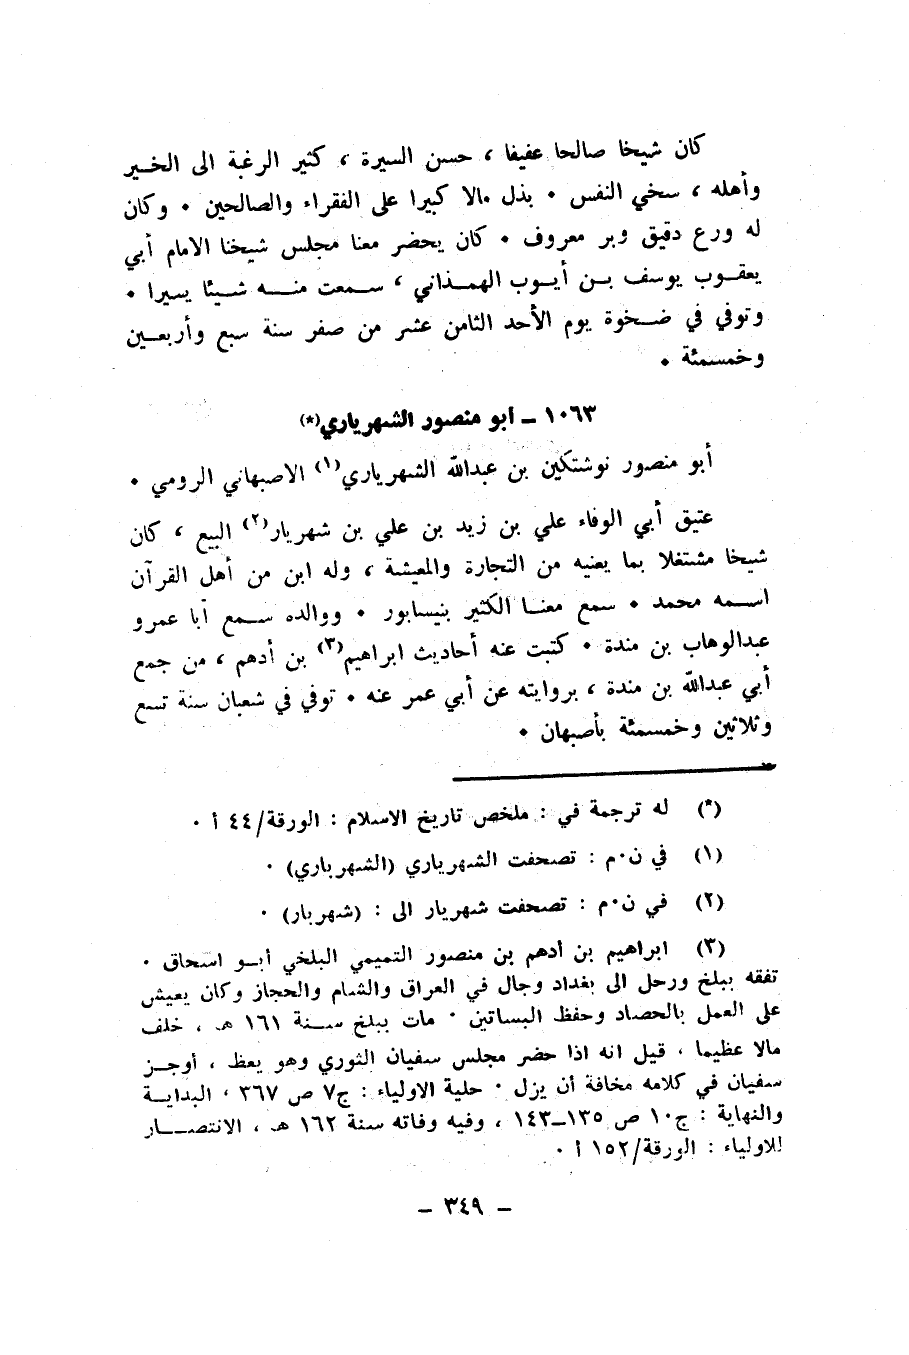 كان شيخا صالحا عفيفا ، حسن السيرة ، كثير الرغبة الى الخـير
وأهله ، سخي النفس ٠ بذل مالا كبيرا على الفقراء والصالحين ٠ وكان
له ورع دقيق وبر معروف ٠ كان يحضر معنا مجلس شيخنا الامام أبي
يعقـوب يوسف بـن أيـوب الهمـذاني ، سـمعت منـه شـيئا يسيرا ٠
وتوفي في ضـخوة يوم الأحد الثامن عشر من صفر سنة سبع وأربعـين
وخمسمئة ٠
١٠٦٣ ـ ابو منصور الشهرياري(*)
أبو منصور نوشتكين بن عبدالله الشهرياري(١) الاصبهاني الرومي ٠
عتيق أبي الوفاء علي بن زيد بن علي بن شهريار(٢) البيع ، كان
شيخا مشتغلا بما يعنيه من التجارة والمعيشة ، وله ابن من أهل القرآن
اسـمه محمد ٠ سمع معنـا الكثير بنيسابور ٠ ووالده سـمع أبا عمرو
عبدالوهاب بن مندة ٠ كتبت عنه أحاديث ابراهيم(٣) بن أدهم ، من جمع
أبي عبدالله بن مندة ، بروايته عن أبي عمر عنه ٠ توفي في شعبان سنة تسع
وثلاثين وخمسمئة بأصبهان ٠
(*) له ترجمة في : ملخص تاريخ الاسلام : الورقة/٤٤ أ ٠
(١) في ن٠م : تصحفت الشهرياري (الشهرباري) ٠
(٢) في ن٠م : تصحفت شهريار الى : (شهربار) ٠
(٣) ابراهيم بن أدهم بن منصور التميمي البلخي أبـو اسحاق ٠
تفقه ببلخ ورحل الى بغداد وجال في العراق والشام والحجاز وكان يعيش
على العمل بالحصاد وحفظ البساتين ٠ مات ببلخ سـنة ١٦١ هـ ، خلف
مالا عظيما ، قيل انه اذا حضر مجلس سفيان الثوري وهو يعظ ، أوجـز
سفيان في كلامه مخافة أن يزل ٠ حلية الاولياء : ج٧ ص ٣٦٧ ، البدايـة
والنهاية : ج١٠ ص ١٣٥ـ١٤٣ ، وفيه وفاته سنة ١٦٢ هـ ، الانتصـار
للاولياء : الورقة/١٥٢ أ ٠
ـ ٣٤٩ ـ